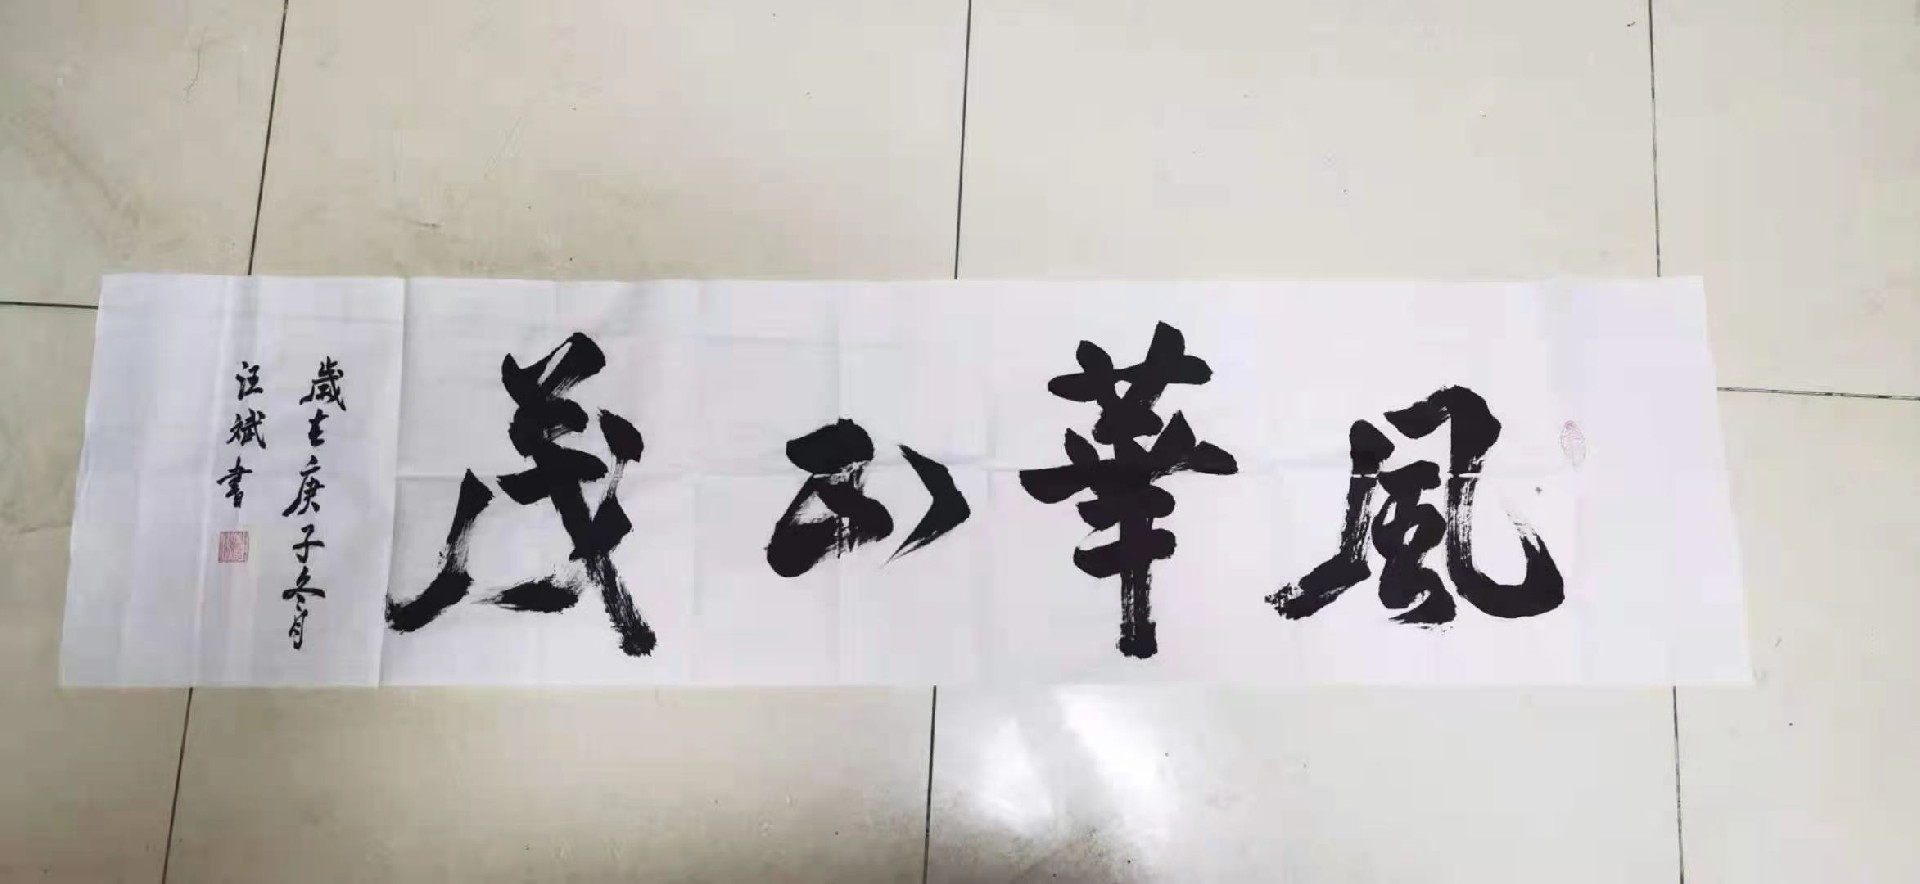 風華正茂
歲在庚子冬月
汪斌書